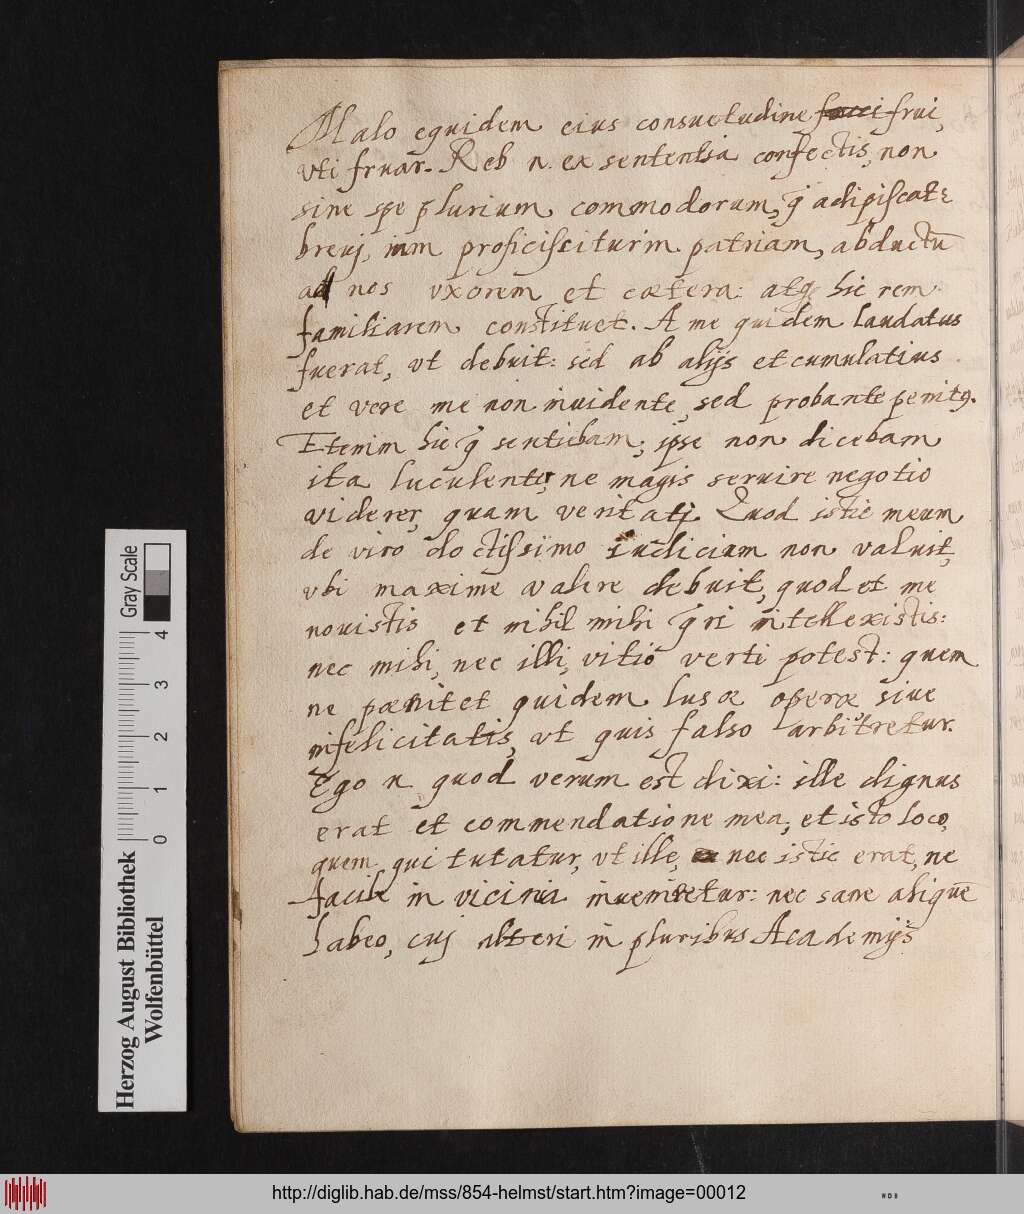 Malo equidem eius consuetudine frui,
vti fruar. Reb n. ex sententia confectis, non
sine spe plurium commodorum, q̃ adipiscat᷑
breuj, iam proficiscitur in patriam, abductũ
ad nos vxorem et cætera: atq hic rem
familiarem constituet. A me quidem laudatus
fuerat, vt debuit: sed ab alijs et cumulatius
et vere me non inuidente, sed probante penitꝰ.
Etenim hic q̃ sentiebam, ipse non dicebam
ita luculenter, ne magis seruire negotio
viderer, quam veritatj. Quod istic meum
de viro doctissimo iudicium non valuit,
vbi maxime valere debuit, quod et me
nouistis et nihil mihi q̃ri intellexistis:
nec mihi, nec illi, vitio verti potest: quem
ne pœnitet quidem lusæ operæ siue
infelicitatis, vt quis falso arbitretur.
Ego n. quod verum est dixi: ille dignus
erat et commendatione mea, et isto loco,
quem qui tutatur, vt ille, nec istic erat, ne
facile in vicinia inueniretur: nec sane aliquẽ
habeo, cuj alteri in pluribus Academijs
Gray Scale
0 1 2 3 4
Herzog August Bibliothek
Wolfenbüttel
http://diglib.hab.de/mss/854-helmst/start.htm?image=00012
WDB